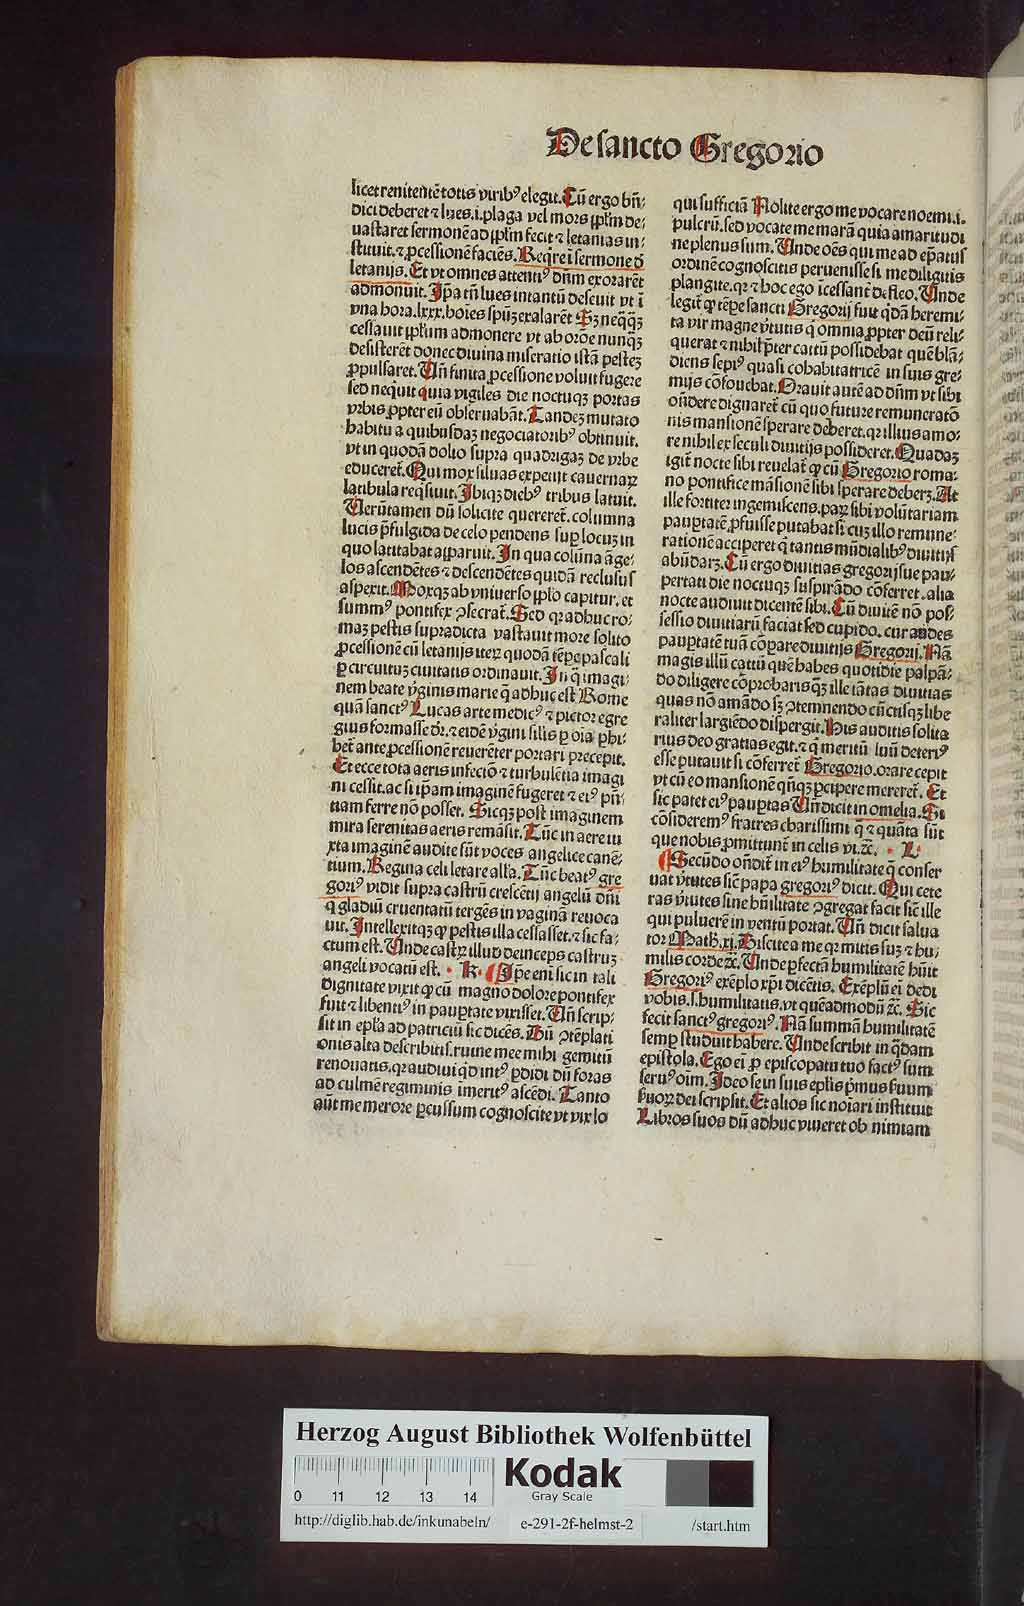 De sancto Gregorio
licet renitentē totis viribꝰ elegit. Cū ergo bn̄-
dici deberet ⁊ lues .i. plaga vel mors ipl̄m de-
uastaret sermonē ad ipl̄m fecit ⁊ letanias in-
stituit. ⁊ ꝓcessionē faciēs. Reqͥre ī sermone d̄
letanijs. Et vt omnes attentiꝰ dn̄m exorarēt
admonuit. Ip̄a tn̄ lues intantū deseuit vt ī
vna hora .lxxx. hoīes spūꝫ exalarēt Sꝫ neqꝫqꝫ
cessauit ipl̄um admonere vt ab orōe nunqꝫ
desisterēt donec diuina miseratio istā pesteꝫ
ꝓpulsaret. Un̄ finita ꝓcessione voluit fugere
sed neqͥuit quia vigiles die noctuqꝫ portas
vrbis ꝓpter eū obseruabāt. Tandeꝫ mutato
habitu a quibusdaꝫ negociatoribꝰ obtinuit.
vt in quodā dolio supra quadrigaꝫ de vrbe
educeret᷑. Qui mox siluas expetijt cauernaꝝ
latibula reqͥsiuit. Ibiqꝫ diebꝰ tribus latuit.
Uerūtamen dū solicite quereret᷑. columna
lucis p̄fulgida de celo pendens suꝑ locuꝫ in
quo latitabat apparuit. In qua colūna āge-
los ascendētes ⁊ descendētes quidā reclusus
aspexit. Moxqꝫ ab vniuerso ipl̄o capitur. et
summꝰ pontifex ꝯsecrat᷑. Sed qꝛ adhuc ro-
maꝫ pestis supradicta vastauit more solito
ꝓcessionē cū letanijs iteꝝ quodā tēꝑe pascali
ꝑ circuituꝫ ciuitatis ordinauit. In qͣ imagi-
nem beate vͥginis marie qͣ adhuc est Rome
quā sanctꝰ Lucas arte medicꝰ ⁊ pictor egre
gius formasse dr̄. ⁊ eidē vͥgini silis ꝑ oīa ꝑhi-
bet᷑ ante ꝓcessionē reuerēter portari precepit.
Et ecce tota aeris infectio ⁊ turbulētia imagi
ni cessit. ac si ipam imaginē fugeret ⁊ eiꝰ pn̄-
tiam ferre nō posset. Sicqꝫ post imaginem
mira serenitas aeris remāsit. Tūc in aere iu
xta imaginē audite sūt voces angelice canē-
tium. Regina celi letare all̄a. Tūc beatꝰ gre
goriꝰ vidit supra castrū crescētij angelū dn̄i
qͥ gladiū cruentatū tergēs in vaginā reuoca
uit. Intellexitqꝫ ꝙ pestis illa cessasset. ⁊ sic fa-
ctum est. Unde castꝝ illud deinceps castruꝫ
angeli vocatū est. · K · ¶ Ip̄e eni sic in tali
dignitate vixit ꝙ cū magno dolore pontifex
fuit ⁊ libentiꝰ in pauꝑtate vixisset. Un̄ scrip-
sit in epl̄a ad patriciū sic dicēs. Dū ꝯtēplati
onis alta describitis. ruine mee mihi gemitū
renouatis. qꝛ audiui qd̄ intꝰ ꝑdidi dū foras
ad culmē regiminis īmeritꝰ ascēdi. Tanto
aūt me merore ꝑcussum cognoscite vt vix lo
qui sufficiā Nolite ergo me vocare noemi .i.
pulcrū. sed vocate me marā quia amaritudi
ne plenus sum. Unde oēs qui me ad ep̄atus
ordinē cognoscitis peruenisse si me diligitis
plangite. qꝛ ⁊ hoc ego īcessant᷑ defleo. Unde
legit᷑ ꝙ tēꝑe sancti Gregorij fuit qͥdā heremi-
ta vir magne vͥtutis qͥ omnia ꝓpter deū reli-
querat ⁊ nihil p̄ter cattū possidebat quē blā-
diens sepiꝰ quasi cohabitatricē in suis gre-
mijs cōfouebat. Orauit autē ad dn̄m vt sibi
on̄dere dignaret᷑ cū quo future remuneratō
nis mansionē sperare deberet. qꝛ illius amo-
re nihil ex seculi diuitijs possideret. Quadaꝫ
igit᷑ nocte sibi reuelat᷑ ꝙ cū Gregorio roma-
no pontifice māsionē sibi sperare deberꝫ. At
ille fortiter ingemiscens. paꝝ sibi volūtariam
pauꝑtatē ꝓfuisse putabat si cuꝫ illo remune-
rationē acciperet qͥ tantis mūdialibꝰ diuitijs
abūdarꝫ. Cū ergo diuitias gregorij sue pau-
pertati die noctuqꝫ suspirādo cōferret. alia
nocte audiuit dicentē sibi. Cū diuitē nō pos-
sessio diuitiarū faciat sed cupido. cur audes
pauꝑtatē tuā cōpare diuitijs Gregorij. Nā
magis illū cattū quē habes quotidie palpā-
do diligere cōprobaris qꝫ ille tātas diuitias
quas nō amādo sꝫ ꝯtemnendo cūctisqꝫ libe
raliter largiēdo dispergit. His auditis solita
rius deo gratias egit. ⁊ qͥ meritū suū deteriꝰ
esse putauit si cōferret᷑ Gregorio. orare cepit
vt cū eo mansionē qn̄qꝫ ꝑcipere mereret᷑. Et
sic patet eiꝰ pauꝑtas Un̄ dicit in omelia. Si
cōsideremꝰ fratres charissimi qͣ ⁊ quāta sūt
que nobis ꝓmittunt᷑ in celis vt .⁊c̄. · L ·
¶ Secūdo on̄dit᷑ in eiꝰ humilitate qͣ conser
uat vͥtutes sic̄ papa gregoriꝰ dicit. Qui cete
ras vͥtutes sine hūilitate ꝯgregat facit sic̄ ille
qui puluerē in ventū portat. Un̄ dicit salua
tor Math̄. xj. Discite a me qꝛ mitis suꝫ ⁊ hu-
milis corde ⁊c̄. Unde ꝑfectā humilitatē hūit
Gregoriꝰ exēplo xp̄i dicētis. Exēplū ei dedi
vobis. s. humilitatis. vt quēadmodū ⁊c̄. Sic
fecit sanctꝰ gregoriꝰ. Nā summā humilitatē
semꝑ studuit habere. Unde scribit in qͣdam
epistola. Ego ei ꝓ episcopatu tuo factꝰ sum
seruꝰ oīm. Ideo se in suis epl̄is pͥmus suum
ẜuoꝝ dei scripsit. Et alios sic noīari instituit
Libros suos dū adhuc viueret ob nimiam
Herzog August Bibliothek Wolfenbüttel
0 11 12 13 14
Kodak
Gray Scale
http://diglib.hab.de/inkunabeln/ e-291-2f-helmst-2 /start.htm